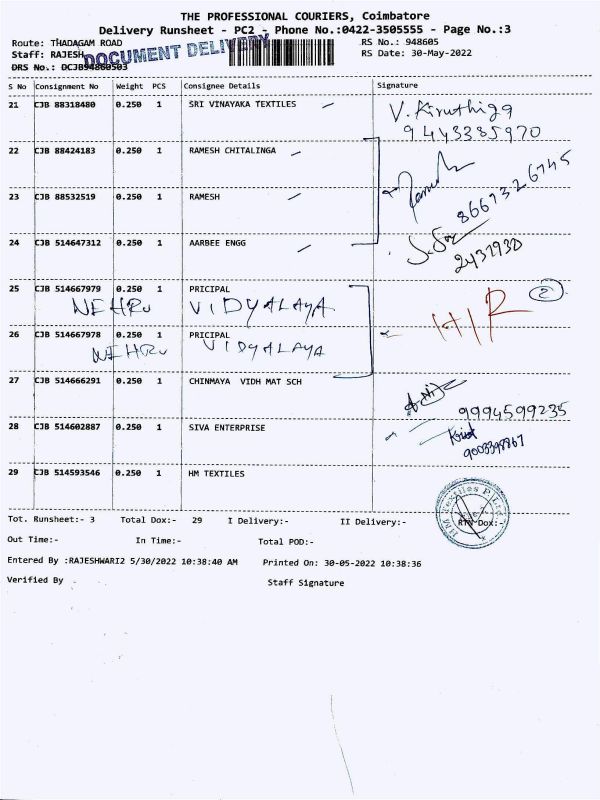 THE PROFESSIONAL COURIERS, Coimbatore
Delivery Runsheet - PC2 - Phone No.:0422-3505555 - Page No.:3
Route: THADAGAM ROAD
RS No.: 948605
Staff: RAJESH
RS Date: 30-May-2022
DOCUMENT DELIVERY
DRS No.: DCJB94860503
S No Consignment No Weight PCS Consignee Details Signature
21 CJB 88318480 0.250 1 SRI VINAYAKA TEXTILES V. Kiruthiga
9443385970
22 CJB 88424183 0.250 1 RAMESH CHITALINGA
23 CJB 88532519 0.250 1 RAMESH Ramesh 8667326745
24 CJB 514647312 0.250 1 AARBEE ENGG
2431930
25 CJB 514667979 0.250 1 PRICIPAL
NEHRU VIDYALAYA
H/R 2
26 CJB 514667978 0.250 1 PRICIPAL
NEHRU VIDYALAYA
27 CJB 514666291 0.250 1 CHINMAYA VIDH MAT SCH
9994599235
28 CJB 514602887 0.250 1 SIVA ENTERPRISE
9003398867
29 CJB 514593546 0.250 1 HM TEXTILES
HM Textiles P Ltd
Tot. Runsheet:- 3 Total Dox:- 29 I Delivery:- II Delivery:- RTN Dox:-
Out Time:- In Time:- Total POD:-
Entered By :RAJESHWARI2 5/30/2022 10:38:40 AM Printed On: 30-05-2022 10:38:36
Verified By Staff Signature